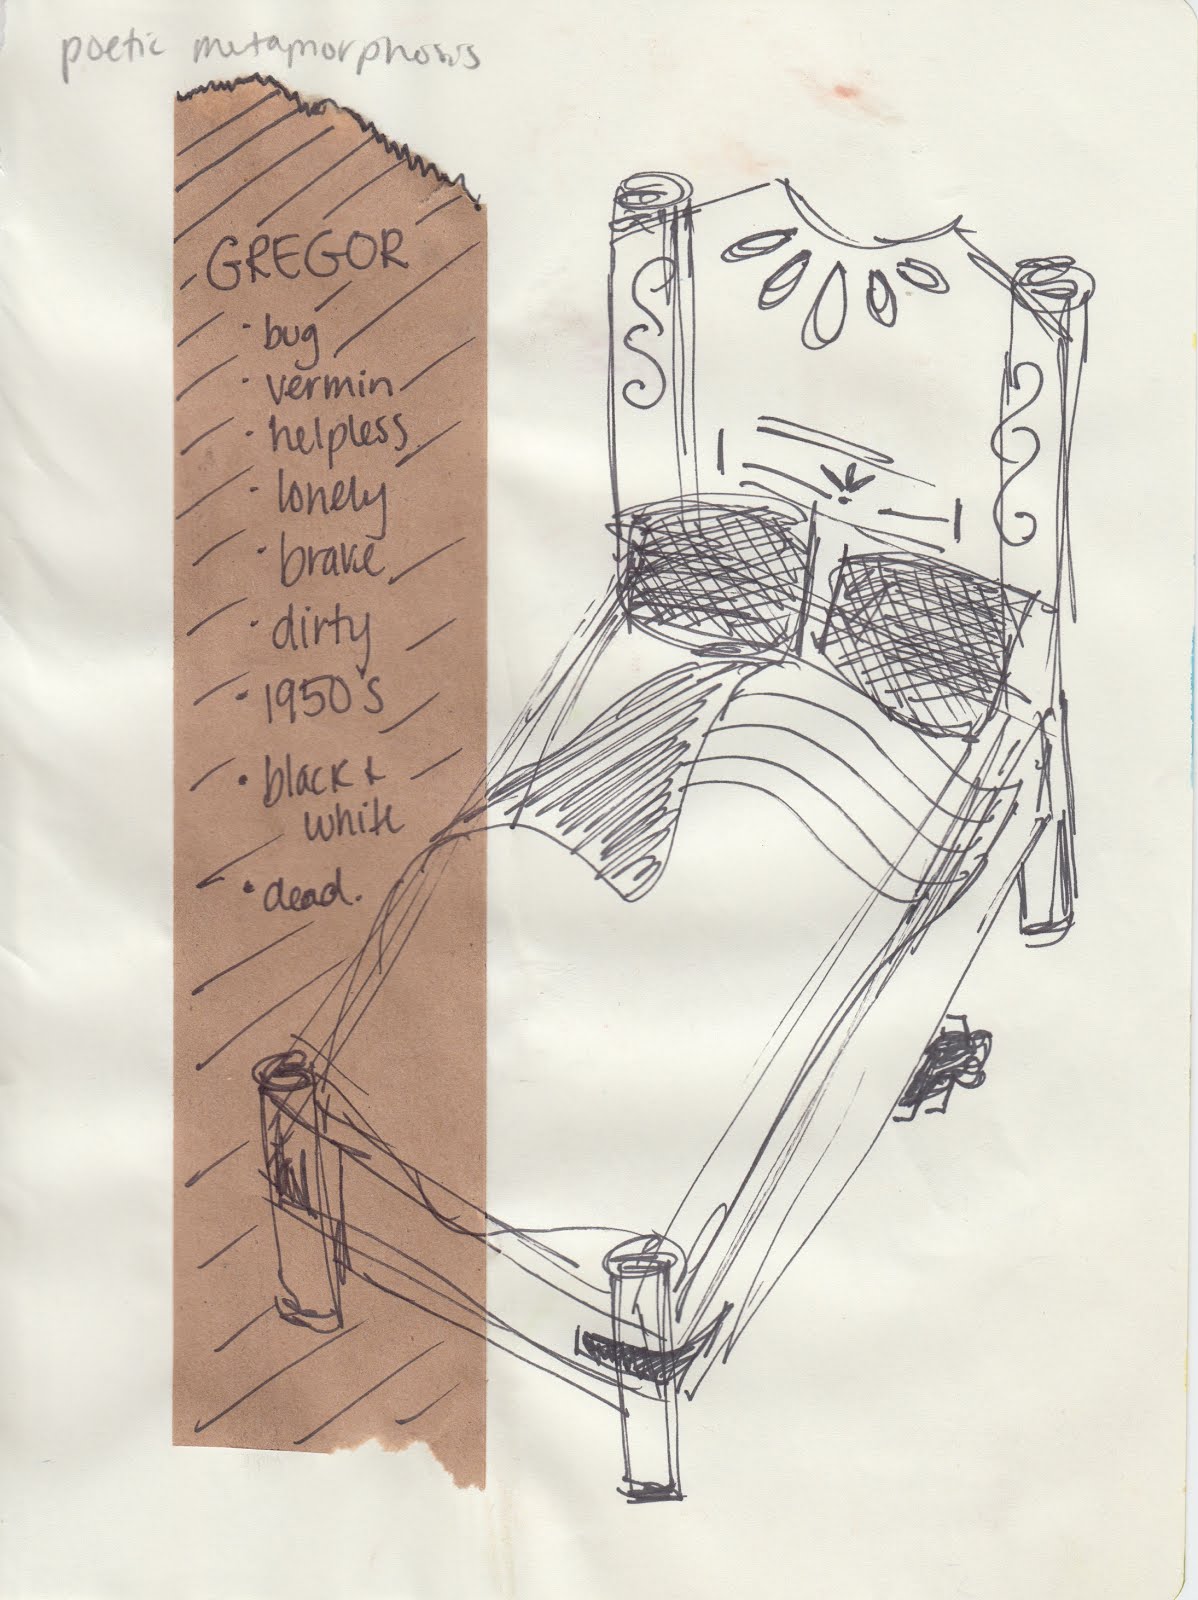 poetic metamorphosis
GREGOR
• bug
• vermin
• helpless
• lonely
• brave
• dirty
• 1950's
• black &
white
• dead.